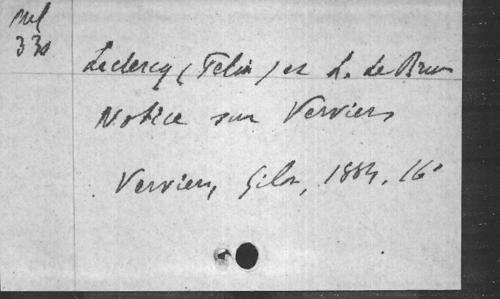 33
Leclercq (Felix) et L. de
Notice sur Verviers
Verviers, Gilon, 1884. 16°